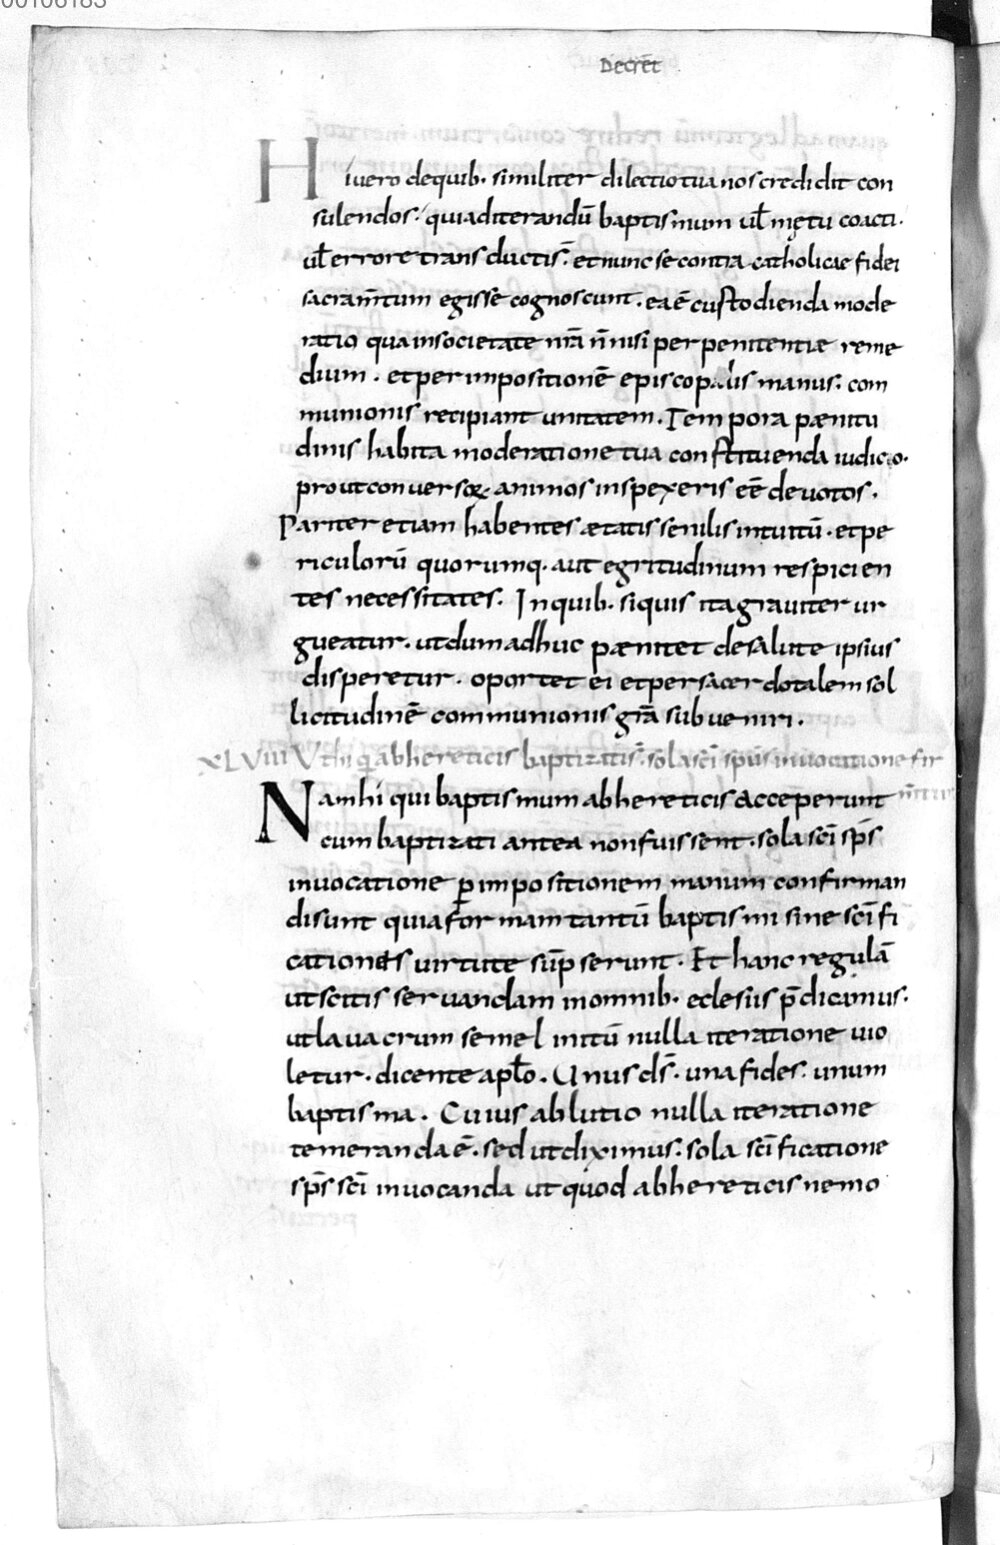 00106183
Decret̄
Hi vero de quib· similiter dilectio tua nos credidit con
sulendos· qui ad iterandū baptismum ul̄ metu coacti·
ul̄ errore transductis· et nunc se contra catholicae fidei
sacram̄tum egisse cognoscunt· ea ē custodienda mode
ratio qua in societate nr̄a n̄ nisi per penitentiæ reme
dium· et per impositionē episcopalis manus· com
munionis recipiant unitatem. Tempora pænitu
dinis habita moderatione tua constituenda iudicio·
prout conversorꝫ animos inspexeris eē devotos.
Pariter etiam habentes ætatis senilis intuitū· et pe
riculorū quorumq· aut egritudinum respicien
tes necessitates. In quib· si quis ita graviter ur
gueatur· ut dum adhuc pænitet de salute ipsius
disperetur· oportet ei et per sacerdotalem sol
licitudinē communionis gr̄a subveniri.
XLVIIII Vt hi q̄ ab hereticis baptizatis· sola sc̄i sp̄us invocatione fir
m̄tur
Nam hi qui baptismum ab hereticis acceperunt
cum baptizati antea non fuissent· sola sc̄i sp̄s
invocatione ꝑ impositionem manum confirman
di sunt quia formam tantū baptismi sine sc̄ifi
cationes virtute sūpserunt. Et hanc regulā
ut scitis servandam in omnib· eclesiis p̄dicamus·
ut lavacrum semel initū nulla iteratione vio
letur· dicente apl̄o. Unus dn̄s· una fides· unum
baptisma. Cuius ablutio nulla iteratione
temeranda ē· sed ut diximus· sola sc̄ificatione
sp̄s sc̄i invocanda ut quod ab hereticis nemo